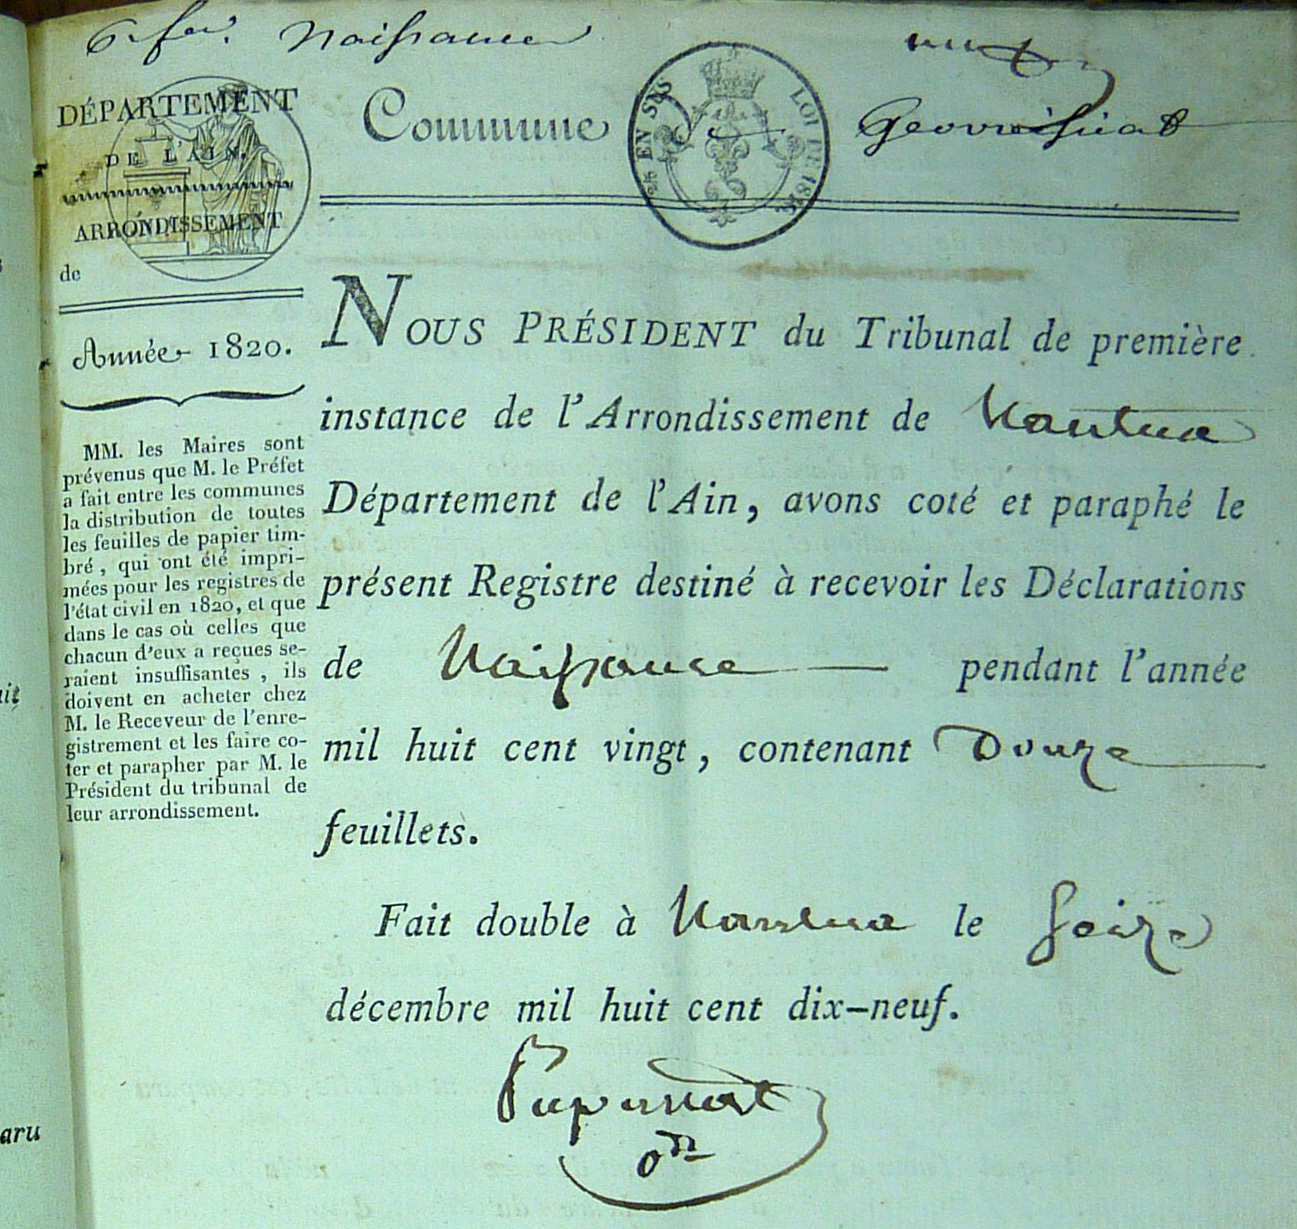 Naissance
DÉPARTEMENT
DE L'AIN.
ARRONDISSEMENT
de
Commune de Geovreissiat
LOI DE 1816
EN SUS
Année 1820.
MM. les Maires sont
prévenus que M. le Préfet
a fait entre les communes
la distribution de toutes
les feuilles de papier tim-
bré, qui ont été impri-
mées pour les registres de
l'état civil en 1820, et que
dans le cas où celles que
chacun d'eux a reçues se-
raient insuffisantes, ils
doivent en acheter chez
M. le Receveur de l'enre-
gistrement et les faire co-
ter et parapher par M. le
Président du tribunal de
leur arrondissement.
NOUS PRÉSIDENT du Tribunal de première
instance de l'Arrondissement de Nantua
Département de l'Ain, avons coté et paraphé le
présent Registre destiné à recevoir les Déclarations
de Naissance pendant l'année
mil huit cent vingt, contenant Douze
feuillets.
Fait double à Nantua le Seize
décembre mil huit cent dix-neuf.
aru